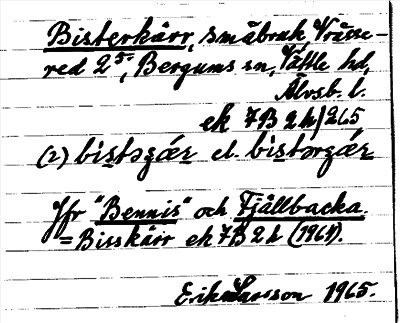 Bisterkärr, småbruk Vråsse-
red 2⁵, Bergums sn, Vättle hd,
Älvsb. l.
ek 7B 2h/265
(2) bistəgǽr el. bistərgǽr
Jfr "Bennis" och Fjällbacka.
= Bisskärr ek 7B 2h (1961).
Erik Larsson 1965.